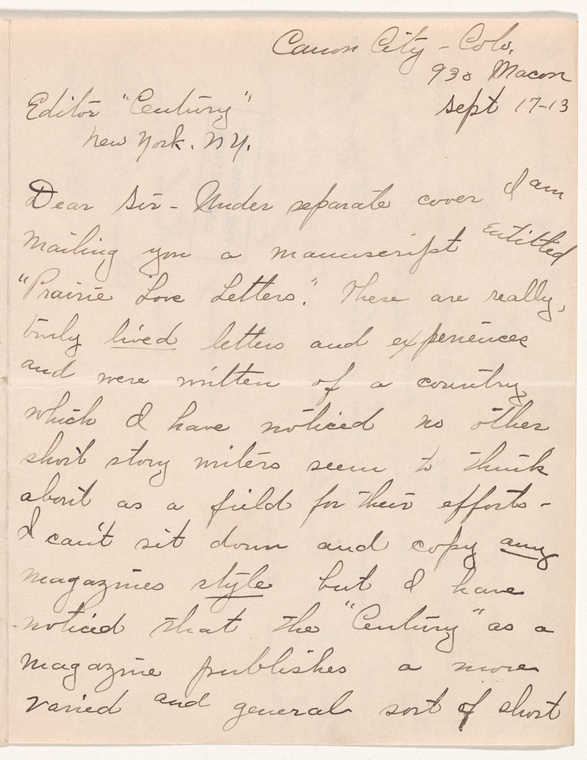 Canon City - Colo,
930 Macon
Sept 17-13
Editor "Century"
New York. N.Y.
Dear Sir - Under separate cover I am
mailing you a manuscript entitled
"Prairie Love Letters." These are really,
truly lived letters and experiences
and were written of a country
which I have noticed no other
short story writers seem to think
about as a field for their efforts -
I can't sit down and copy any
magazines style but I have
noticed that the "Century" as a
magazine publishes a more
varied and general sort of short